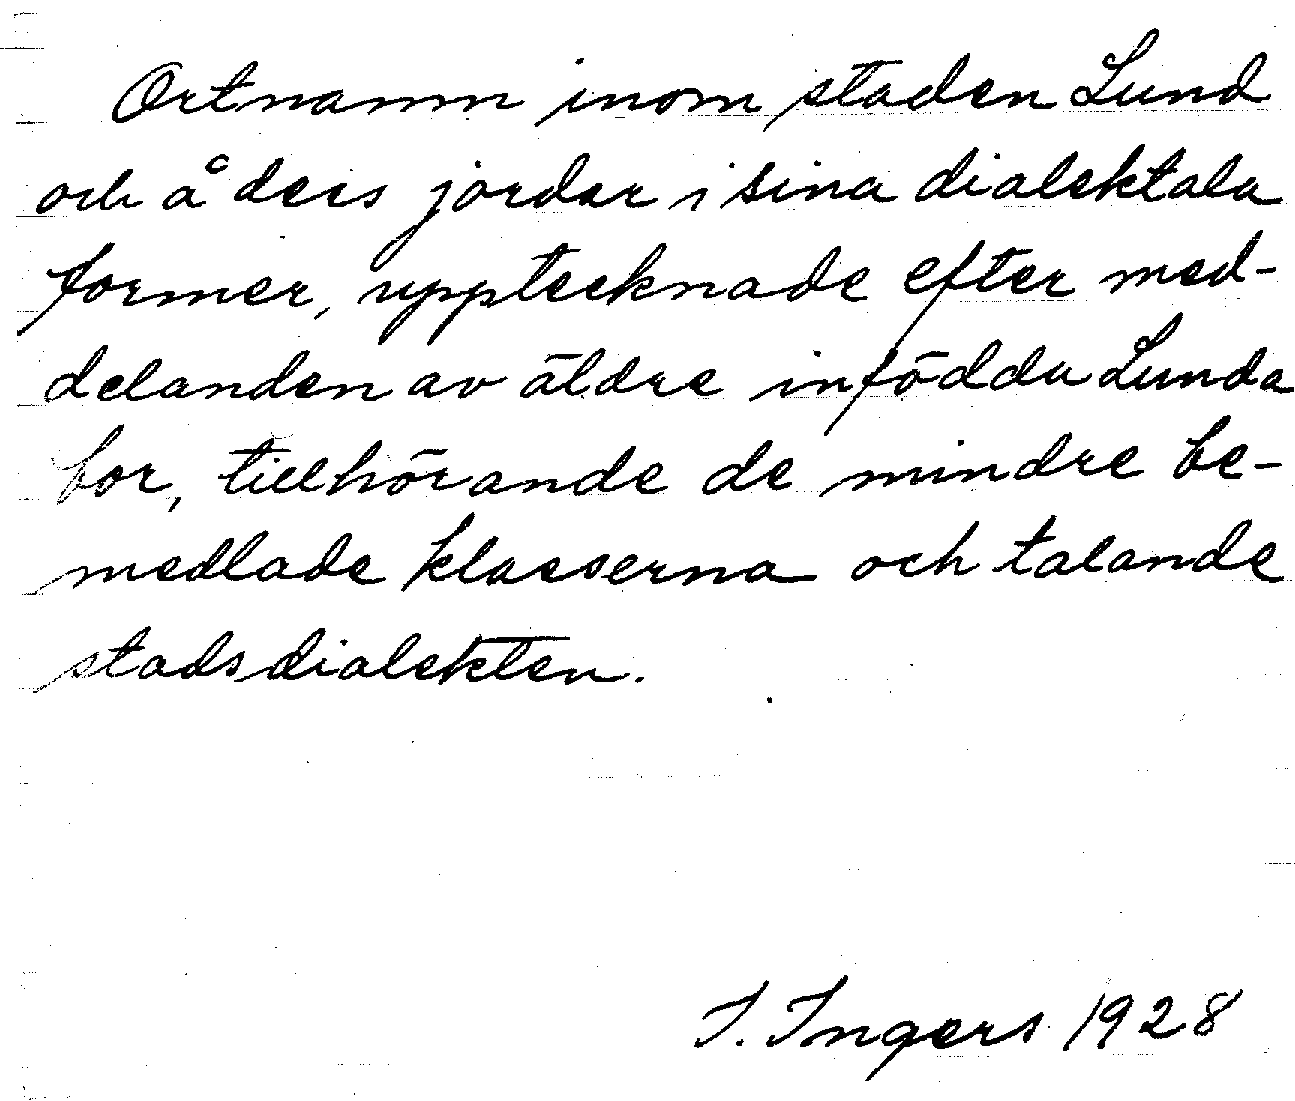 Ortnamn inom staden Lund
och å dess jordar i sina dialektala
former, upptecknade efter med-
delanden av äldre infödda Lunda
bor, tillhörande de mindre be-
medlade klasserna och talande
stadsdialekten.
I. Ingers 1928